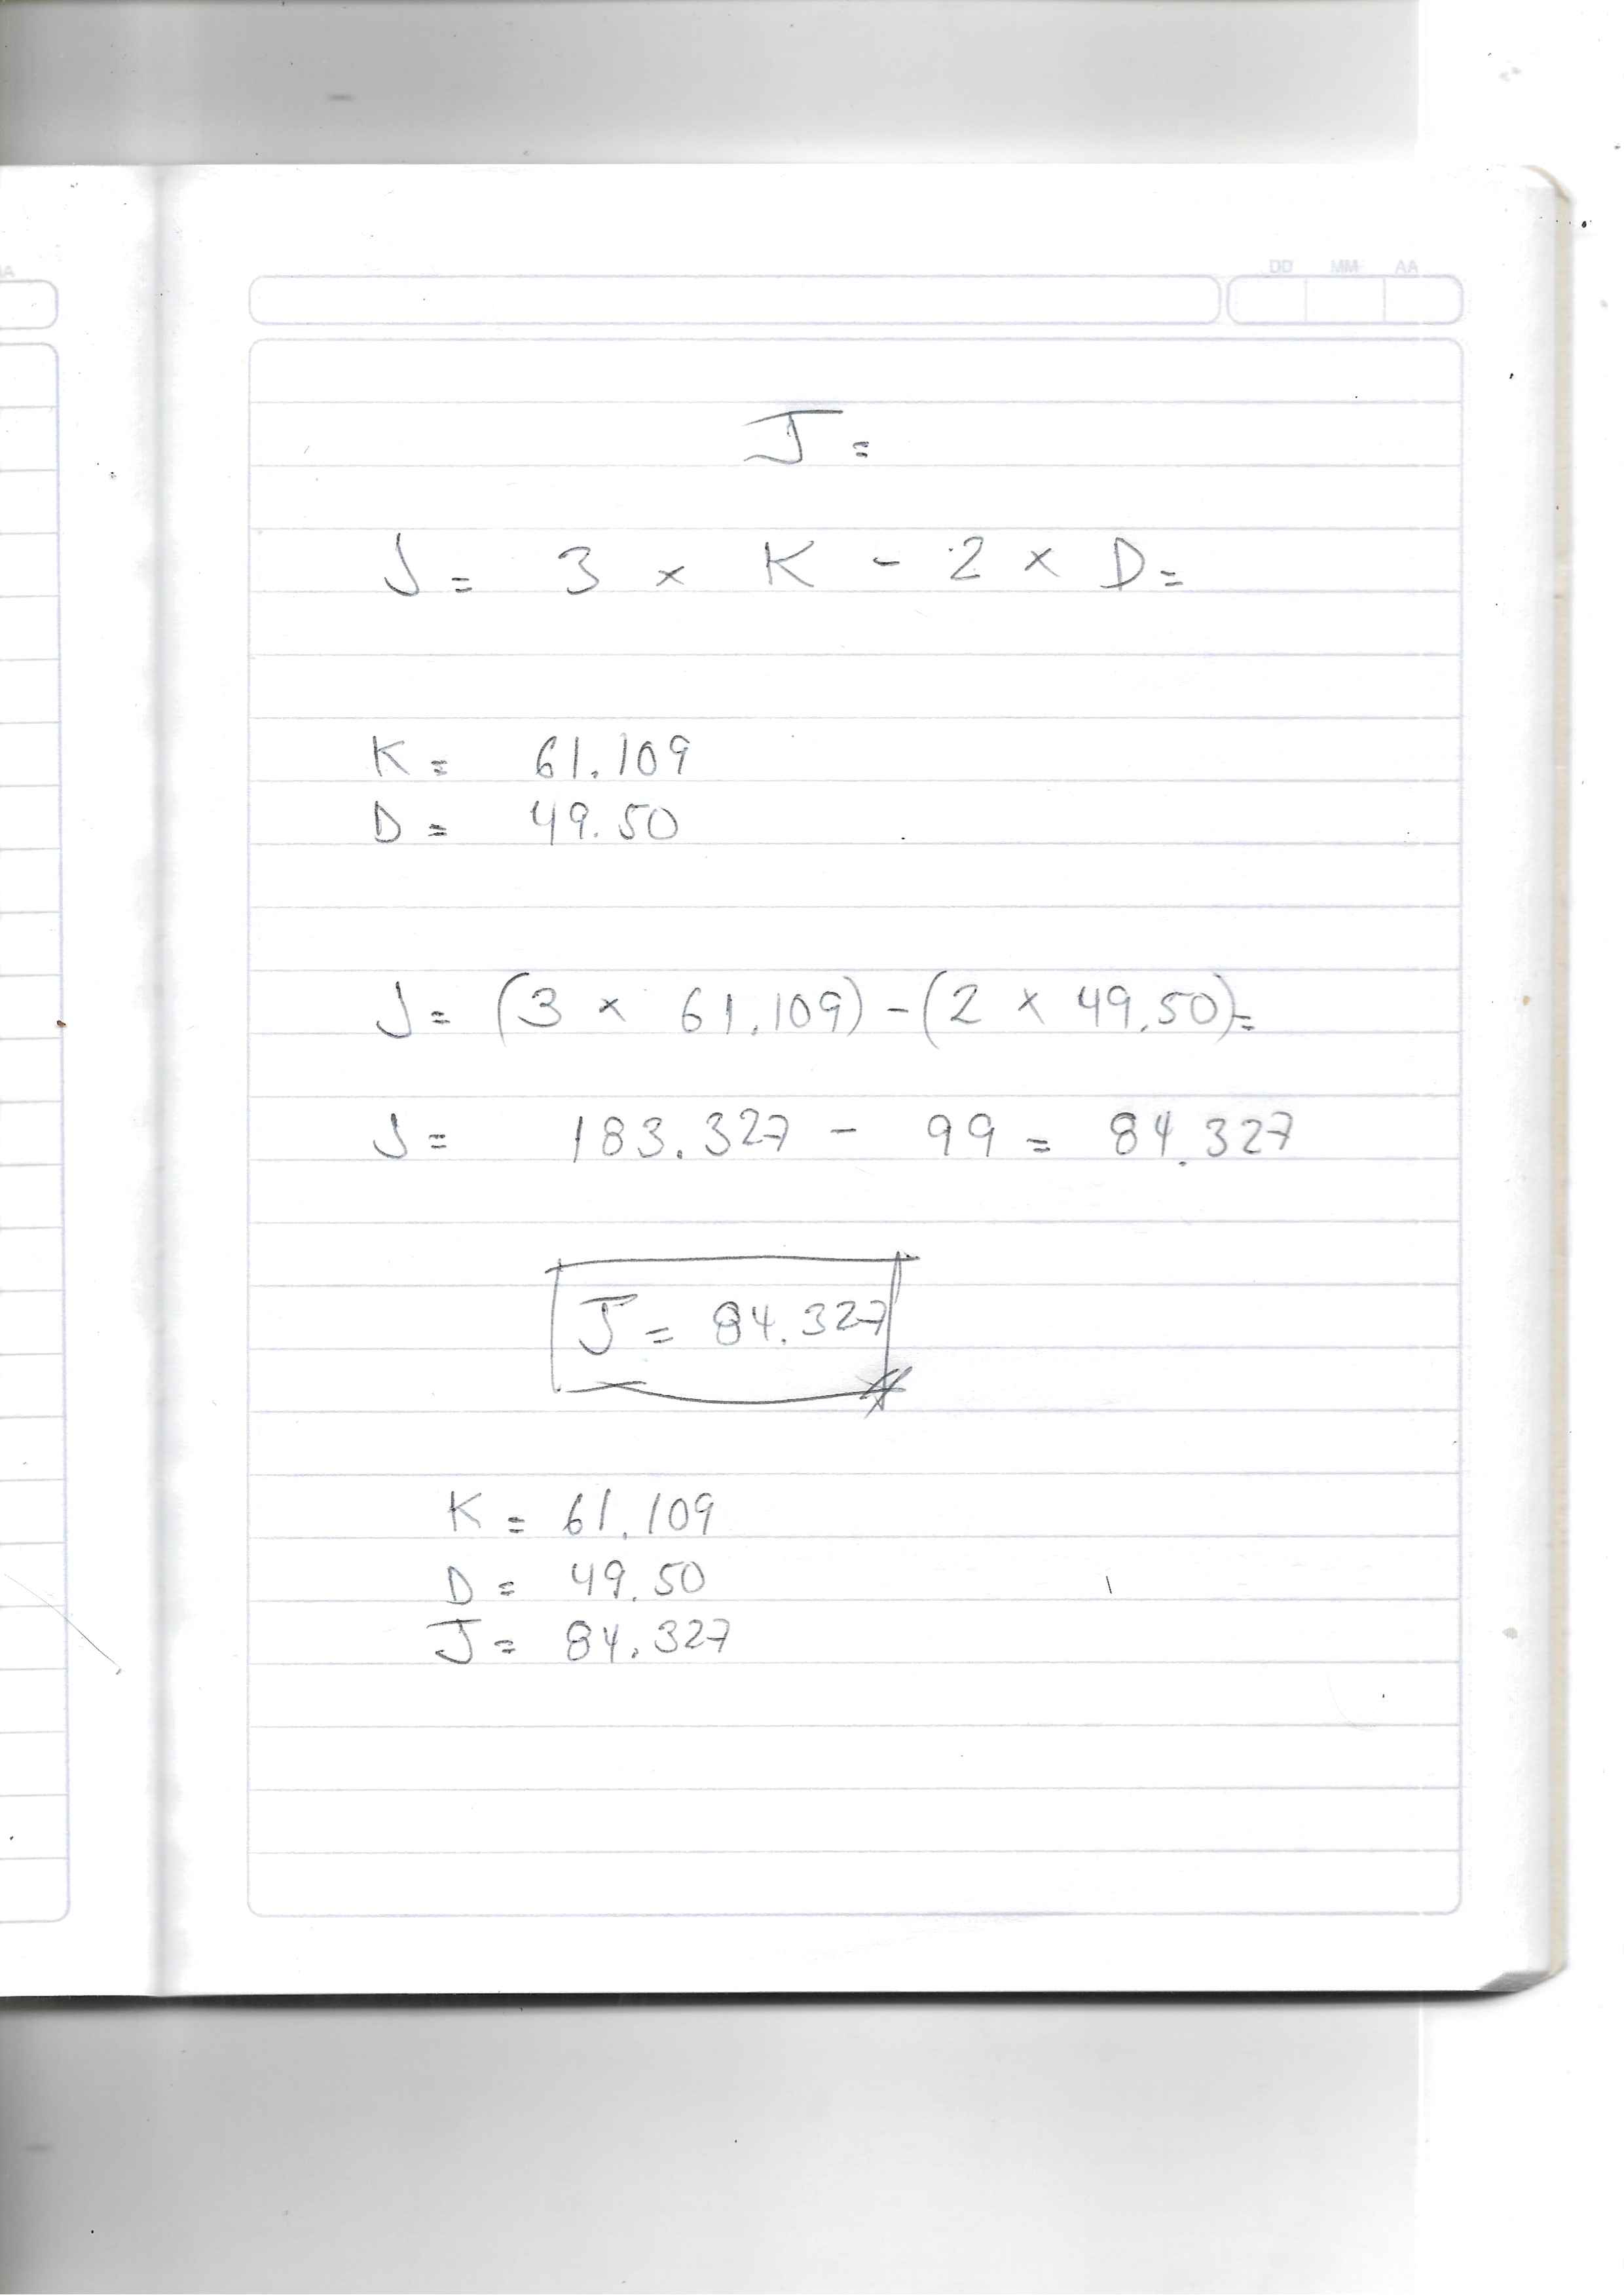 A
DD MM AA
J =
J = 3 x K - 2 x D =
K = 61.109
D = 49.50
J = (3 x 61.109) - (2 x 49.50) =
J = 183.327 - 99 = 84.327
J = 84.327
K = 61.109
D = 49.50
J = 84.327